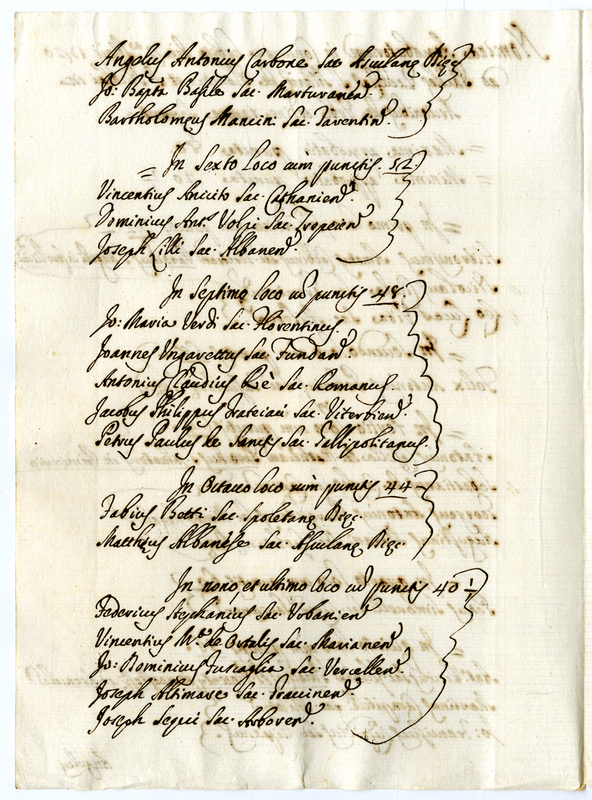 Angelus Antonius Carbone Sac. Asculanę Dięc.
Jo: Bapta Basile Sac. Marturanen.
Bartholomęus Mancini Sac. Taventin.
= In Sexto loco cum punctis. 52
Vincentius Anicito Sac. Cathanien.
Dominicus Ant.s Volpi Sac. Tropeien.
Joseph Lilli Sac. Albanen.
In Septimo loco cu punctis 48.
Jo: Maria Verdi Sac. Florentinus.
Joannes Ungarettus Sac. Fundan.
Antonius Claudius Rè Sac. Romanus.
Jacobus Philippus Sac. Viterbien.
Petrus Paulus de Sanctis Sac. Gallipolitanus.
In Octavo loco cum punctis 44
Fabius Betti Sac. Spoletanę Dięc.
Matthęus Albanese Sac. Asculanę Dięc.
In nono, et ultimo loco cu punctis 40
Federicus Stephanius Sac. Urbanien.
Vincentius M.a de Ortalis Sac. Marianen.
Jo: Dominicus Fuscaglia Sac. Vercellen.
Joseph Altimare Sac. Gravinen.
Joseph Sequi Sac. Arboren.